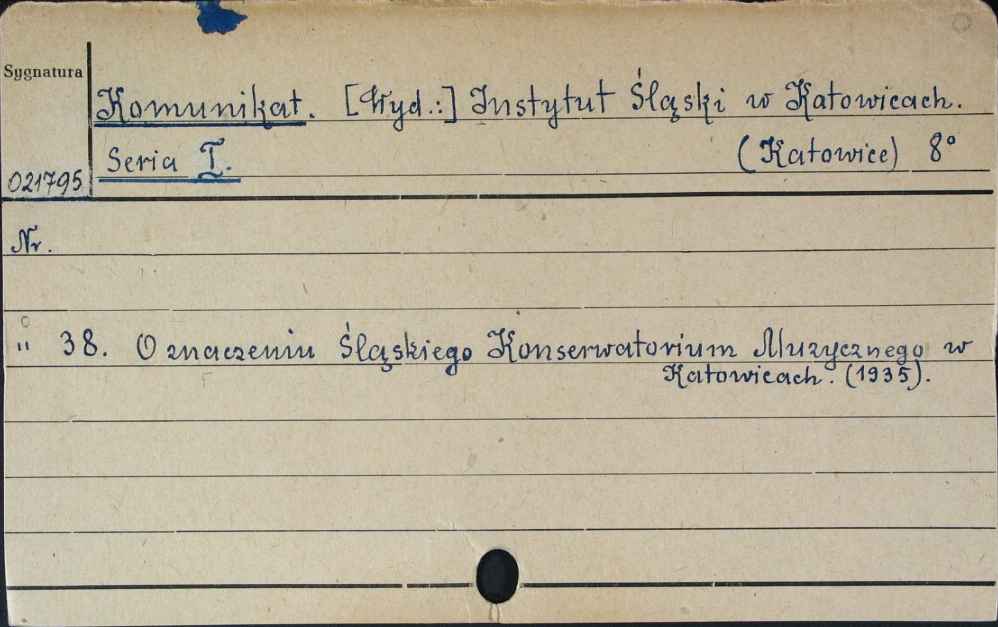 Sygnatura
Komunikat. [Wyd.:] Instytut Śląski w Katowicach.
Seria I. (Katowice) 8°
021795
Nr.
" 38. O znaczeniu Śląskiego Konserwatorium Muzycznego w
Katowicach. (1935).